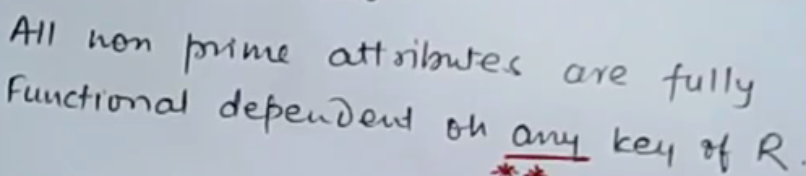 All non prime attributes are fully
Functional dependent on any key of R.
**